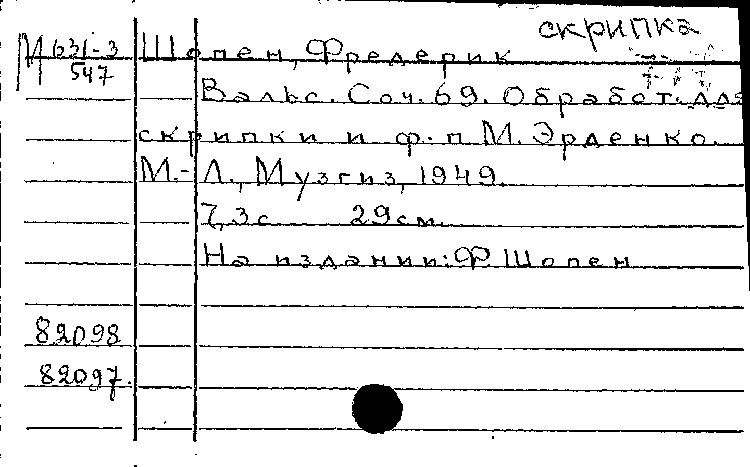 скрипка
М 631-3 Шопен, Фредерик
547
Вальс. Соч. 69. Обработ. для
скрипки и ф.-п М. Эрденко.
М.-Л., Музгиз, 1949.
7,3с 29см.
На издании: Ф Шопен
82098
82097.